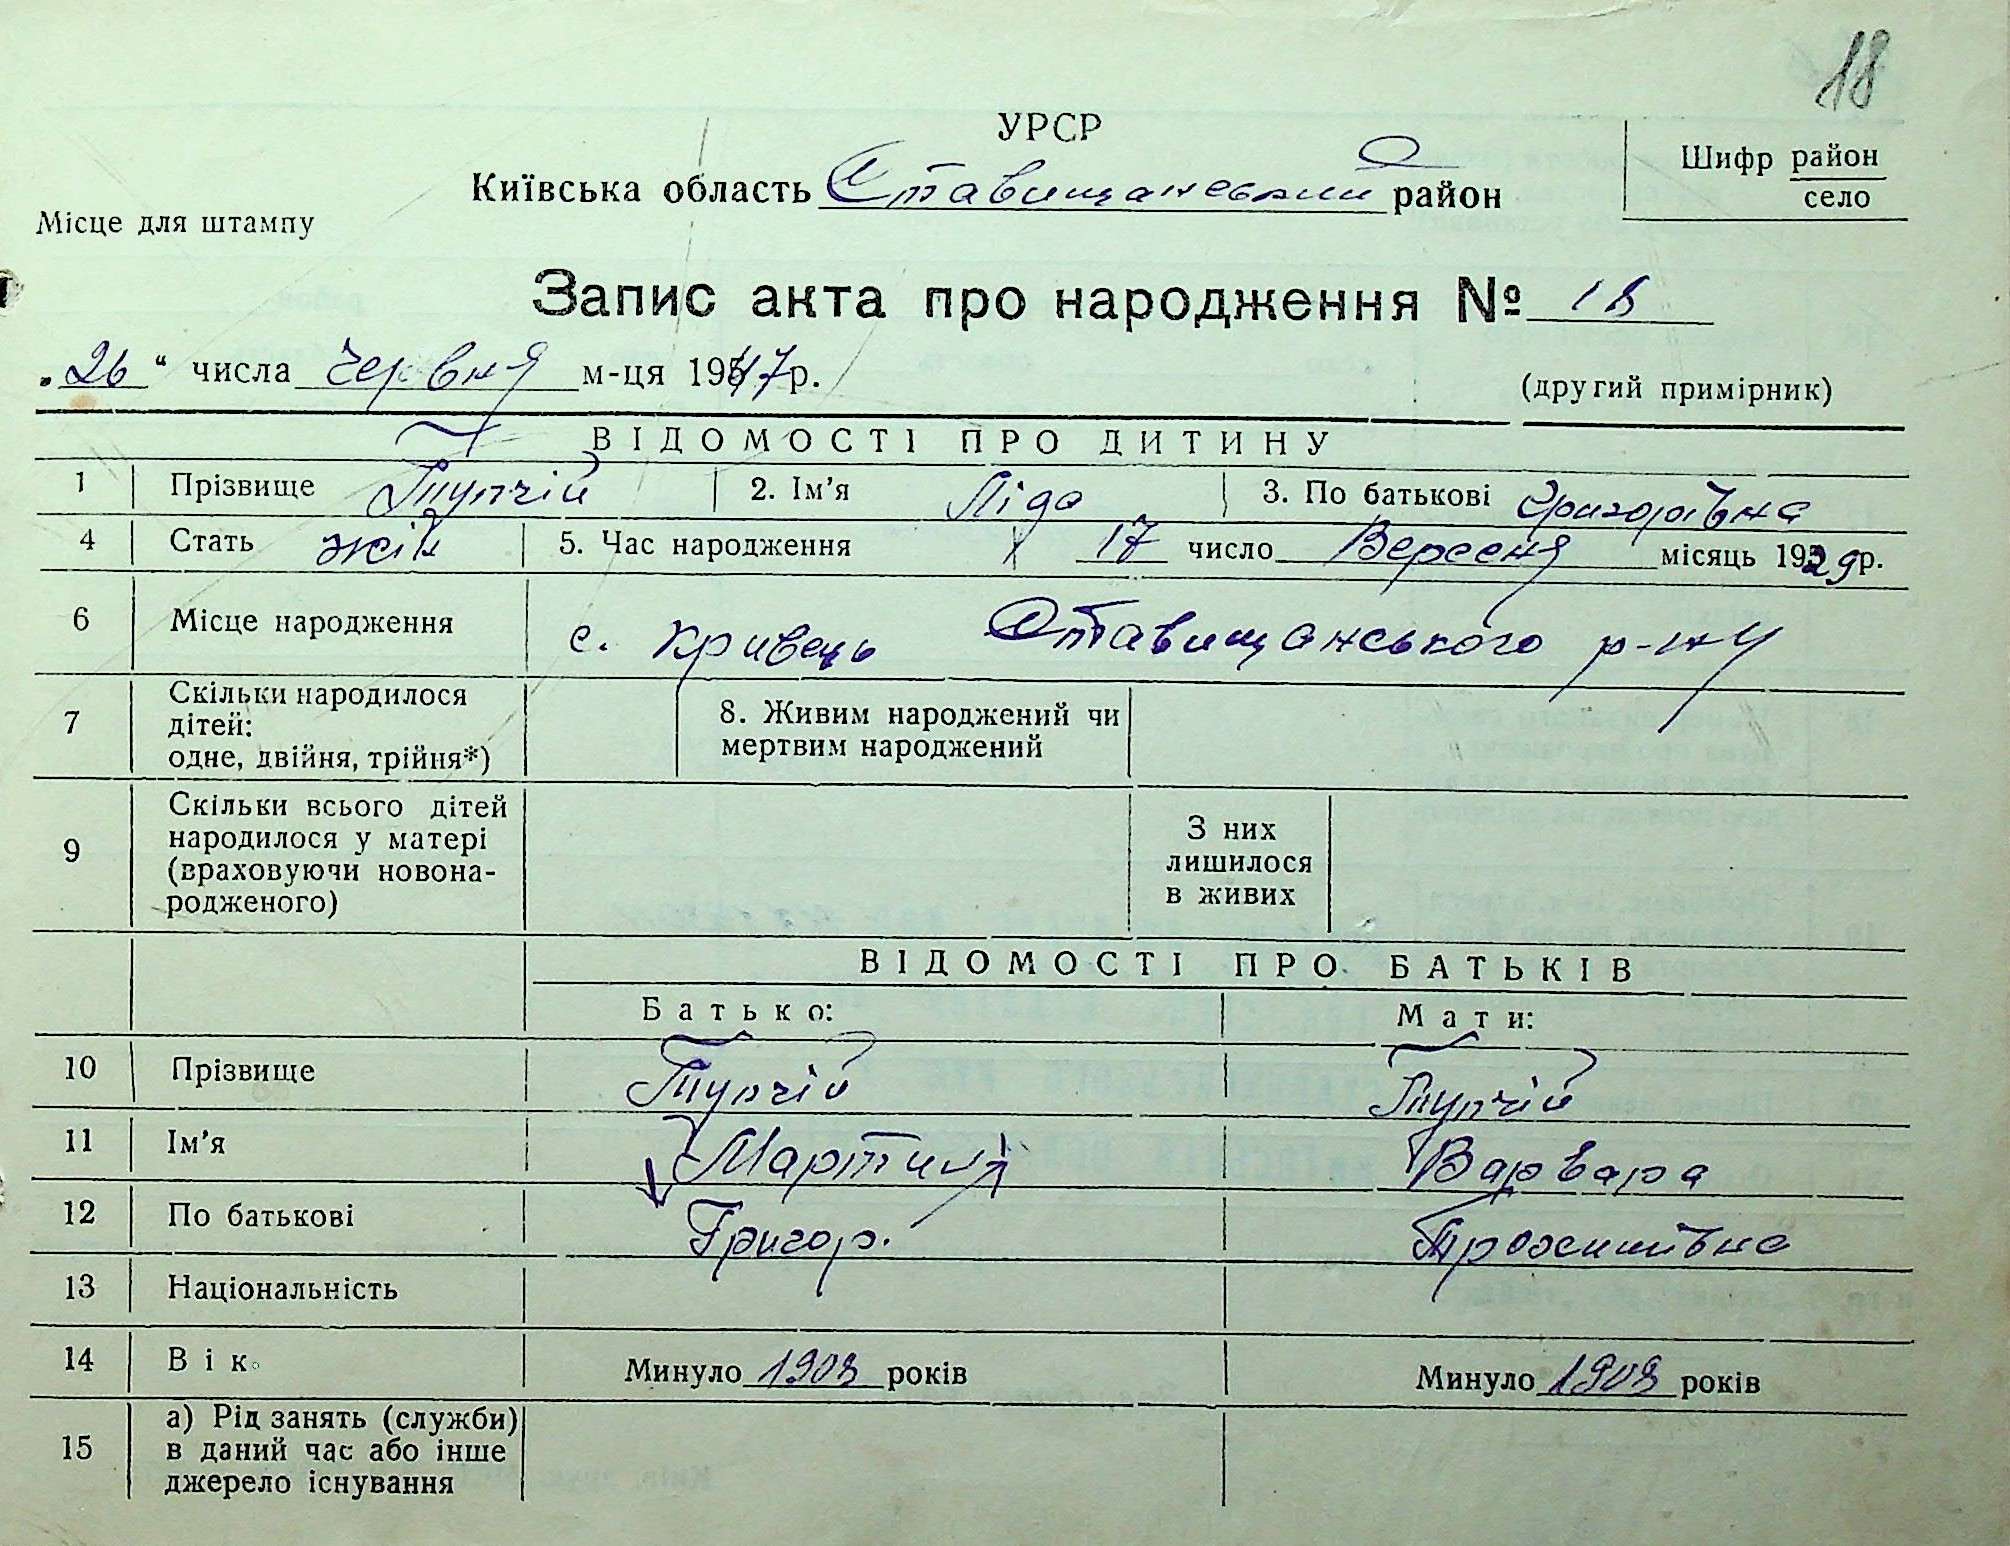 18
УРСР
Київська область Ставищанський район
Шифр район
село
Місце для штампу
Запис акта про народження № 18
„26“ числа Червня м-ця 1947 р.
(другий примірник)
ВІДОМОСТІ ПРО ДИТИНУ
1 Прізвище Тупчій 2. Ім'я Ліда 3. По батькові Григорівна
4 Стать жін 5. Час народження 17 число Вересня місяць 1929 р.
6 Місце народження с. Кривець Ставищанського р-ну
7 Скільки народилося
дітей:
одне, двійня, трійня*)
8. Живим народжений чи
мертвим народжений
9 Скільки всього дітей
народилося у матері
(враховуючи новона-
родженого)
З них
лишилося
в живих
ВІДОМОСТІ ПРО БАТЬКІВ
Батько: Мати:
10 Прізвище Тупчій Тупчій
11 Ім'я Мартин Варвара
12 По батькові Григор. Трохимівна
13 Національність
14 Вік Минуло 1908 років Минуло 1908 років
15 а) Рід занять (служби)
в даний час або інше
джерело існування